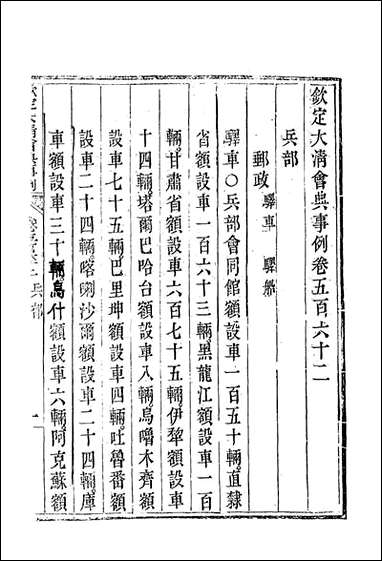 欽定大清會典事例卷五百六十二
兵部
郵政 驛車 驛船
驛車○兵部會同館額設車一百五十輛直隸
省額設車一百六十三輛黑龍江額設車一百
輛甘肅省額設車六百七十五輛伊犂額設車
十四輛塔爾巴哈台額設車八輛烏嚕木齊額
設車七十五輛巴里坤額設車四輛吐魯番額
設車二十四輛喀喇沙爾額設車二十四輛庫
車額設車三十輛烏什額設車六輛阿克蘇額